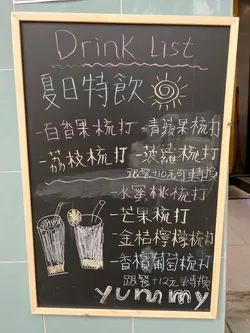 Drink List
夏日特飲
-百香果梳打 -青蘋果梳打
-荔枝梳打 -菠蘿梳打
跟餐+10元可轉換
-水蜜桃梳打
-芒果梳打
-金桔檸檬梳打
-香檳葡萄梳打
跟餐+12元轉換
yummy